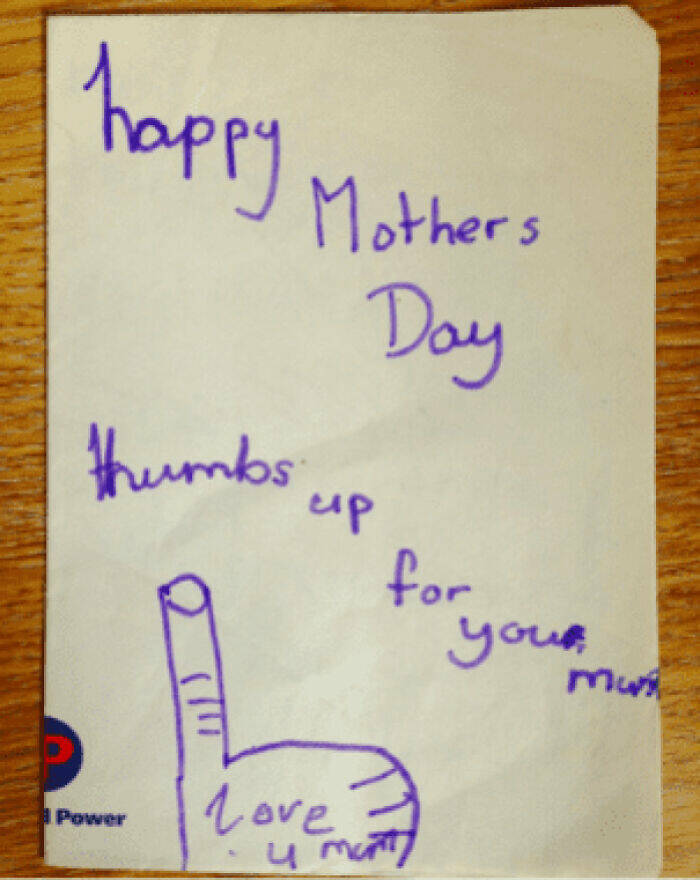 happy
Mothers
Day
thumbs
up
for
your
mum
P
d Power
Love
u mum